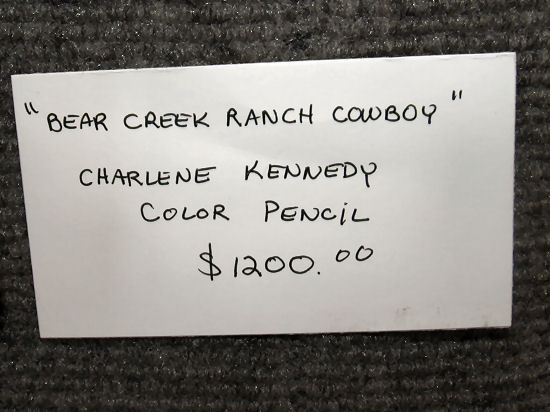 "BEAR CREEK RANCH COWBOY"
CHARLENE KENNEDY
COLOR PENCIL
$1200.00